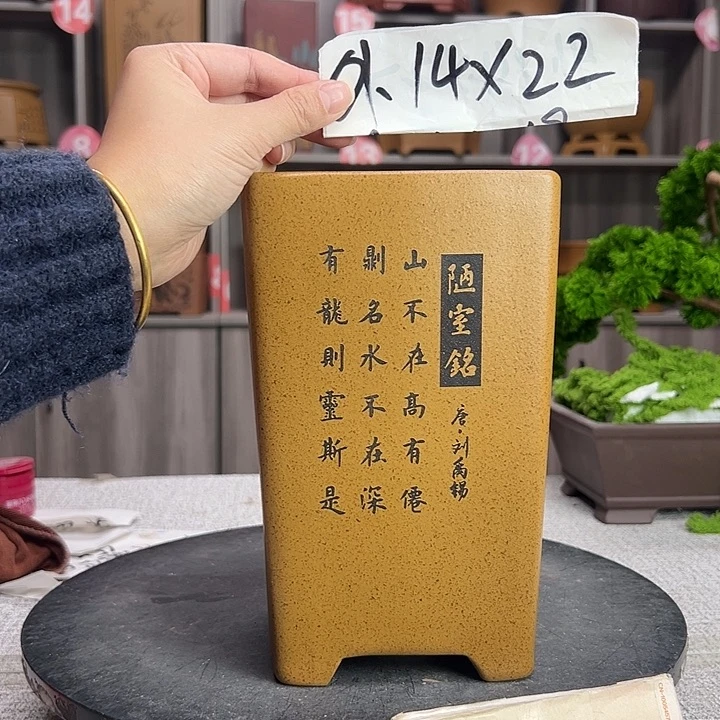 14×22
陋室銘
唐·刘禹錫
山不在髙有僊
則名水不在深
有龍則靈斯是
14
15
8
13
12